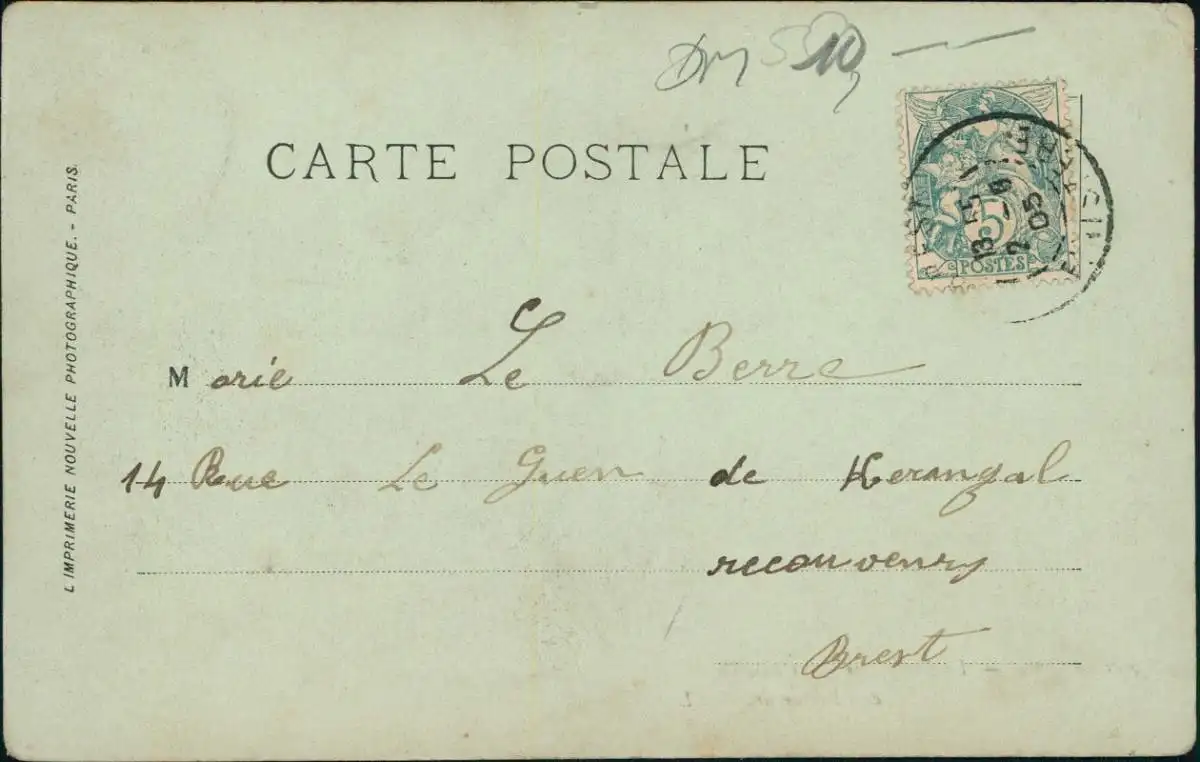 CARTE POSTALE
L'IMPRIMERIE NOUVELLE PHOTOGRAPHIQUE. - PARIS.
5
POSTES
BREST
13 55
2 -6
05
FINISTERE
Marie Le Berre
14 Rue Le Guen de Kerangal
recouvenry
Brest